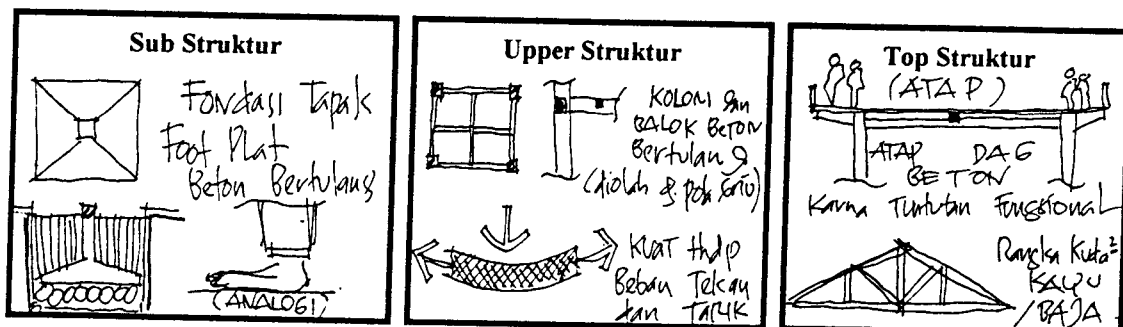 Sub Struktur
Fondasi Tapak
Foot Plat
Beton Bertulang
(ANALOGI)
Upper Struktur
KOLOM dan
BALOK BETON
Bertulang
(diolah
KUAT thdp
Beban Tekan
dan Tarik
Top Struktur
(ATAP)
ATAP DAG
BETON
Karna Tuntutan Fungsional
Rangka Kuda²
KAYU
/BAJA